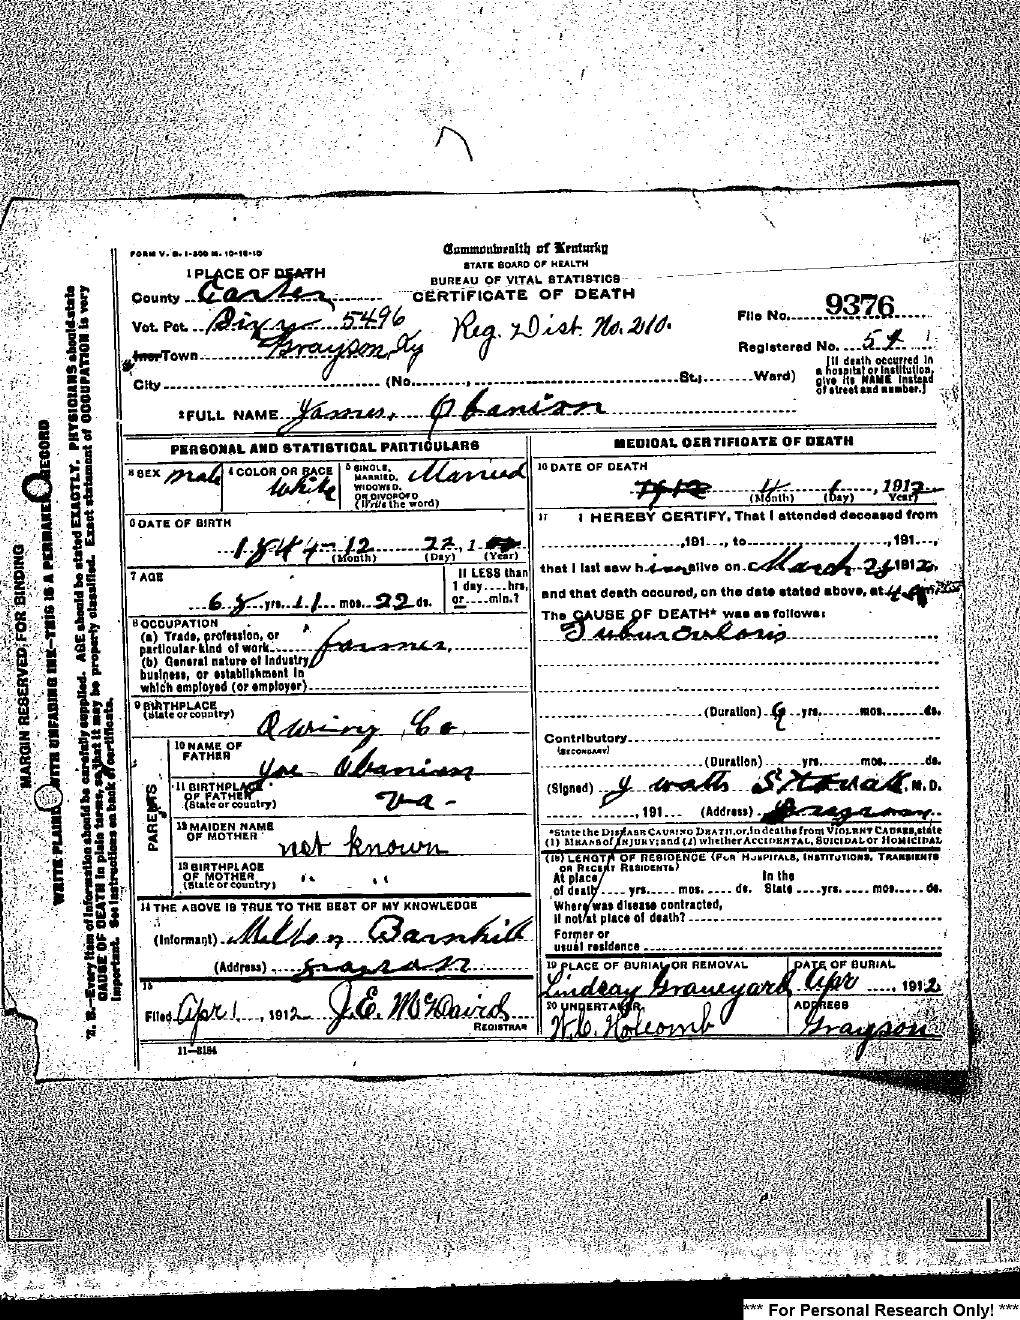 FORM V. S. 1-500 M. 10-10-10
Commonwealth of Kentucky
STATE BOARD OF HEALTH
BUREAU OF VITAL STATISTICS
CERTIFICATE OF DEATH
1 PLACE OF DEATH
County Carter
Vot. Pct. 5496
Reg. Dist. No. 210.
File No. 9376
Registered No. 54
Town Grayson, Ky
City (No. , St.; Ward)
[If death occurred in
a hospital or institution,
give its NAME instead
of street and number.]
2 FULL NAME James Obanion
PERSONAL AND STATISTICAL PARTICULARS
3 SEX male
4 COLOR OR RACE White
5 SINGLE,
MARRIED,
WIDOWED,
OR DIVORCED
(Write the word)
Married
6 DATE OF BIRTH
1844-12 22, 1
(Month) (Day) (Year)
7 AGE
yrs. 11 mos. 22 ds.
If LESS than
1 day....hrs.
or....min.?
8 OCCUPATION
(a) Trade, profession, or
particular kind of work farmer
(b) General nature of industry
business, or establishment in
which employed (or employer)
9 BIRTHPLACE
(State or country)
Co
PARENTS
10 NAME OF
FATHER
Joe Obanion
11 BIRTHPLACE
OF FATHER
(State or country)
Va -
12 MAIDEN NAME
OF MOTHER
not known
13 BIRTHPLACE
OF MOTHER
(State or country)
" "
14 THE ABOVE IS TRUE TO THE BEST OF MY KNOWLEDGE
(Informant) Milton Barnhill
(Address) Grayson
15
Filed Apr 1, 1912 J.E. McDavid
REGISTRAR
11-3184
MEDICAL CERTIFICATE OF DEATH
16 DATE OF DEATH
4 1, 1912
(Month) (Day) (Year)
17 I HEREBY CERTIFY, That I attended deceased from
, 191 , to , 191 ,
that I last saw him alive on March 1912,
and that death occured, on the date stated above, at
The CAUSE OF DEATH* was as follows:
Tuburculosis
(Duration) yrs. mos. ds.
Contributory
(SECONDARY)
(Duration) yrs. mos. ds.
(Signed) J Watts Stovall, M. D.
, 191 (Address) Grayson
*State the DISEASE CAUSING DEATH, or, in deaths from VIOLENT CAUSES, state
(1) MEANS of INJURY; and (2) whether ACCIDENTAL, SUICIDAL or HOMICIDAL
(18) LENGTH OF RESIDENCE (FOR HOSPITALS, INSTITUTIONS, TRANSIENTS
OR RECENT RESIDENTS)
At place In the
of death yrs. mos. ds. State yrs. mos. ds.
Where was disease contracted,
if not at place of death?
Former or
usual residence
19 PLACE OF BURIAL OR REMOVAL
Lindsay Graveyard
DATE OF BURIAL
Apr , 1912
20 UNDERTAKER
W.C. Holcomb
ADDRESS
Grayson
MARGIN RESERVED FOR BINDING
WRITE PLAINLY WITH UNFADING INK—THIS IS A PERMANENT RECORD
N. B.—Every item of information should be carefully supplied. AGE should be stated EXACTLY. PHYSICIANS should state
CAUSE OF DEATH in plain terms, so that it may be properly classified. Exact statement of OCCUPATION is very
important. See instructions on back of certificate.
*** For Personal Research Only! ***